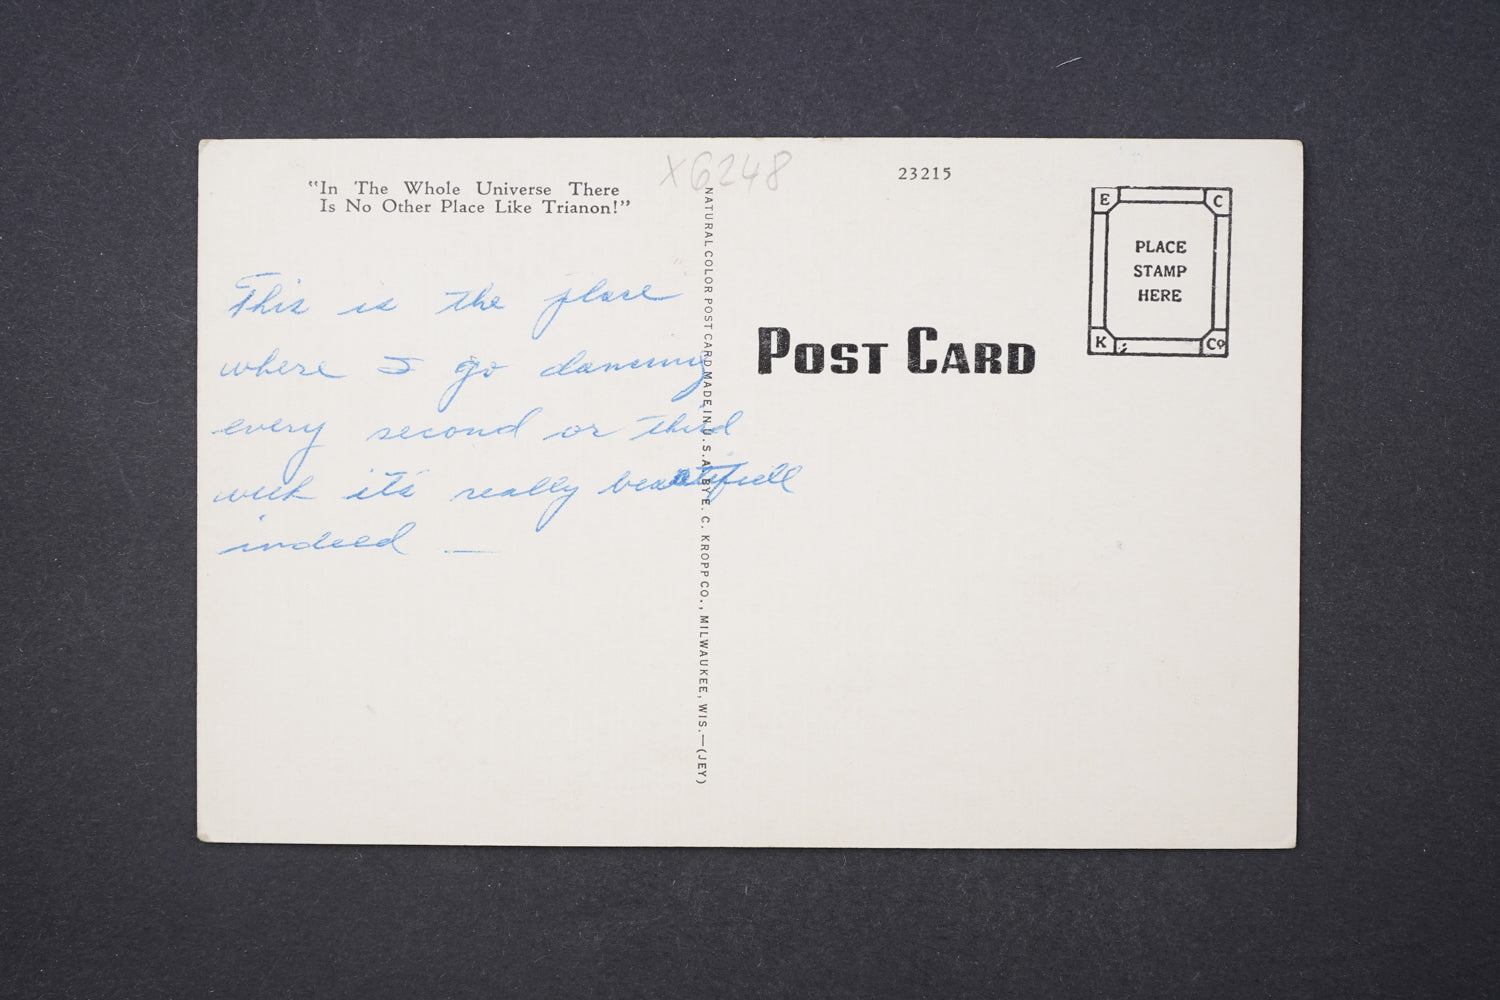 "In The Whole Universe There
Is No Other Place Like Trianon!"
This is the place
where I go dancing
every second or third
week its really beautifull
indeed —
X6248
NATURAL COLOR POST CARD MADE IN U.S.A. BY E. C. KROPP CO., MILWAUKEE, WIS.—(JEY)
23215
POST CARD
E C
PLACE
STAMP
HERE
K Co